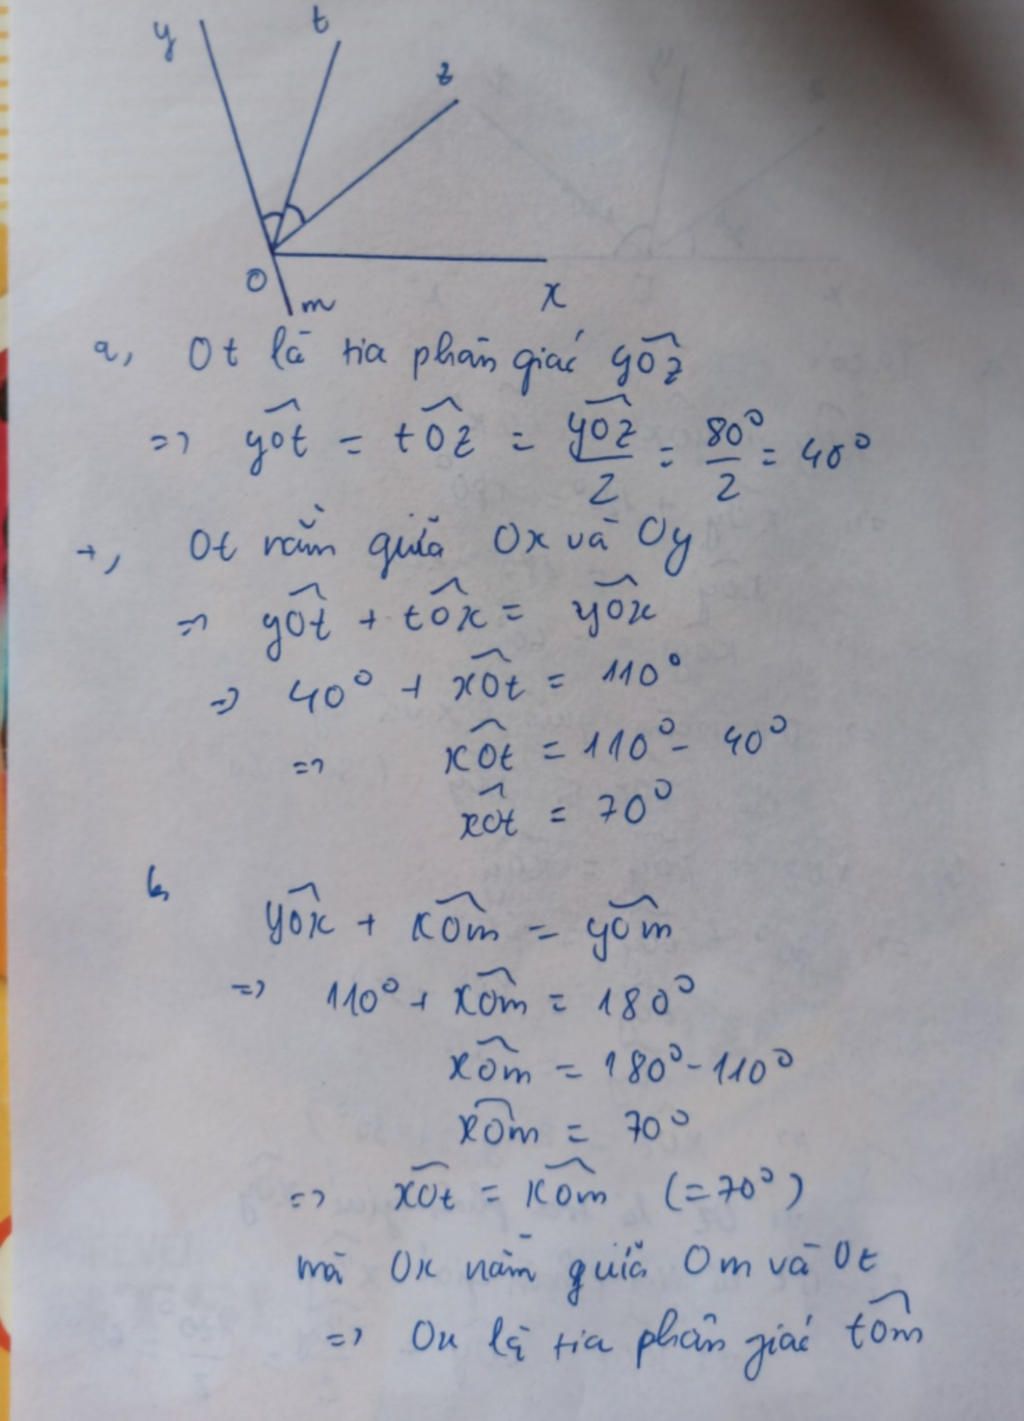 y t z
O m x
a, Ot là tia phân giác yÔz
=> yÔt = tÔz = yÔz/2 = 80°/2 = 40°
+, Ot nằm giữa Ox và Oy
=> yÔt + tÔx = yÔx
=> 40° + xÔt = 110°
=> xÔt = 110° - 40°
xÔt = 70°
b,
yÔx + xÔm = yÔm
=> 110° + xÔm = 180°
xÔm = 180° - 110°
xÔm = 70°
=> xÔt = xÔm (= 70°)
mà Ox nằm giữa Om và Ot
=> Ox là tia phân giác tÔm